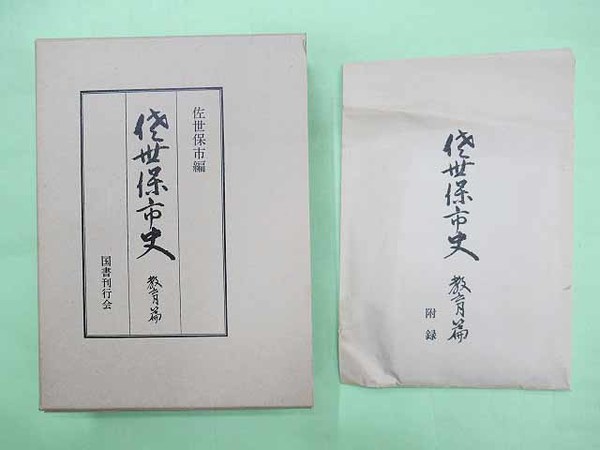 佐世保市編
佐世保市史 教育篇
国書刊行会
佐世保市史 教育篇
附録